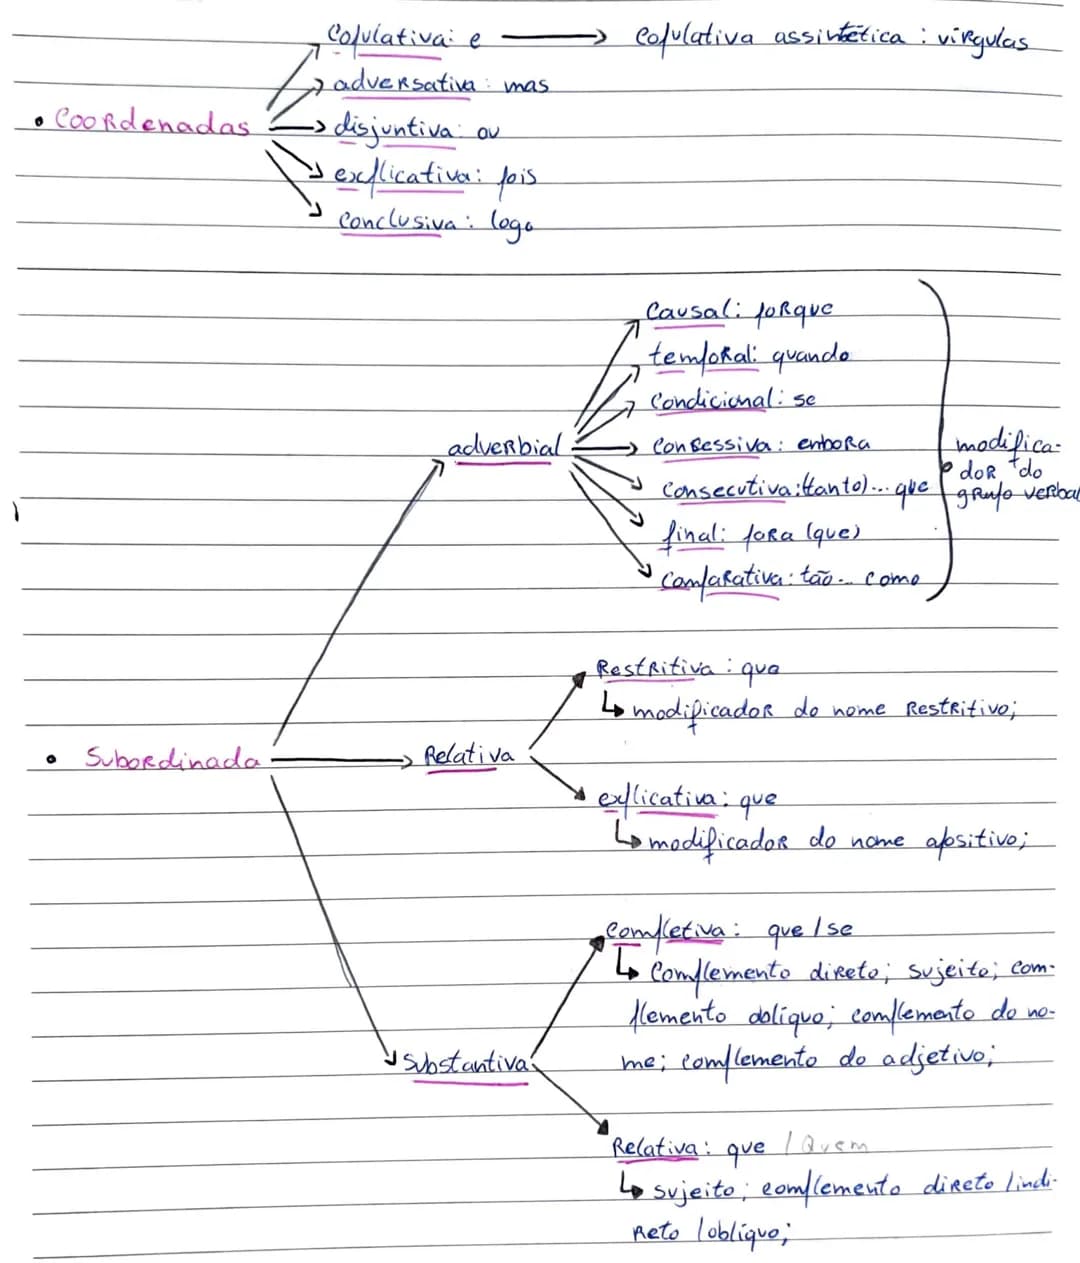 Copulativa: e → copulativa assintética : vírgulas
adversativa : mas
• Coordenadas → disjuntiva: ou
explicativa: pois
conclusiva : logo
causal: porque
temporal: quando
condicional: se
adverbial → consessiva : enbora
modifica-
dor do
consecutiva:(tanto)... que
grupo verbal
final: para (que)
comparativa: tão... como
Restritiva : que
↳ modificador do nome Restritivo;
• Subordinada → Relativa
explicativa: que
↳ modificador do nome apositivo;
completiva: que / se
↳ complemento direto; sujeito; com-
plemento oblíquo; complemento do no-
me; complemento do adjetivo;
substantiva
Relativa: que / Quem
↳ sujeito; complemento direto / indi-
reto / oblíquo;